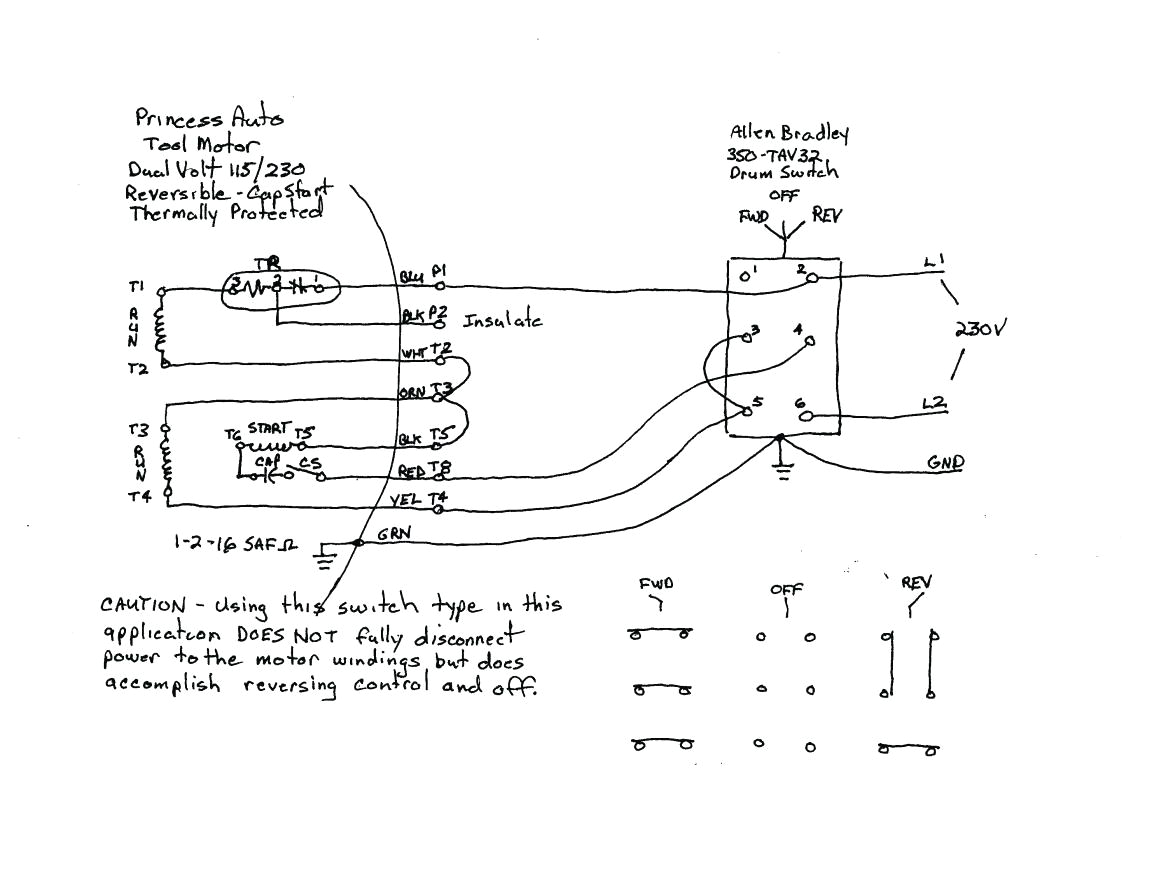 Princess Auto
Tool Motor
Dual Volt 115/230
Reversible - Cap Start
Thermally Protected
Allen Bradley
350-TAV32
Drum Switch
OFF
FWD
REV
TR
3 2 1
BLU P1
1
2
L1
T1
RUN
T2
BLK P2
Insulate
WHT T2
3
4
230V
ORN T3
5
6
L2
T3
RUN
T4
T6 START T5
BLK T5
CAP CS
RED T8
GND
YEL T4
1-2-16 SAF Ω
GRN
CAUTION - Using this switch type in this
application DOES NOT fully disconnect
power to the motor windings but does
accomplish reversing control and off.
FWD
OFF
REV